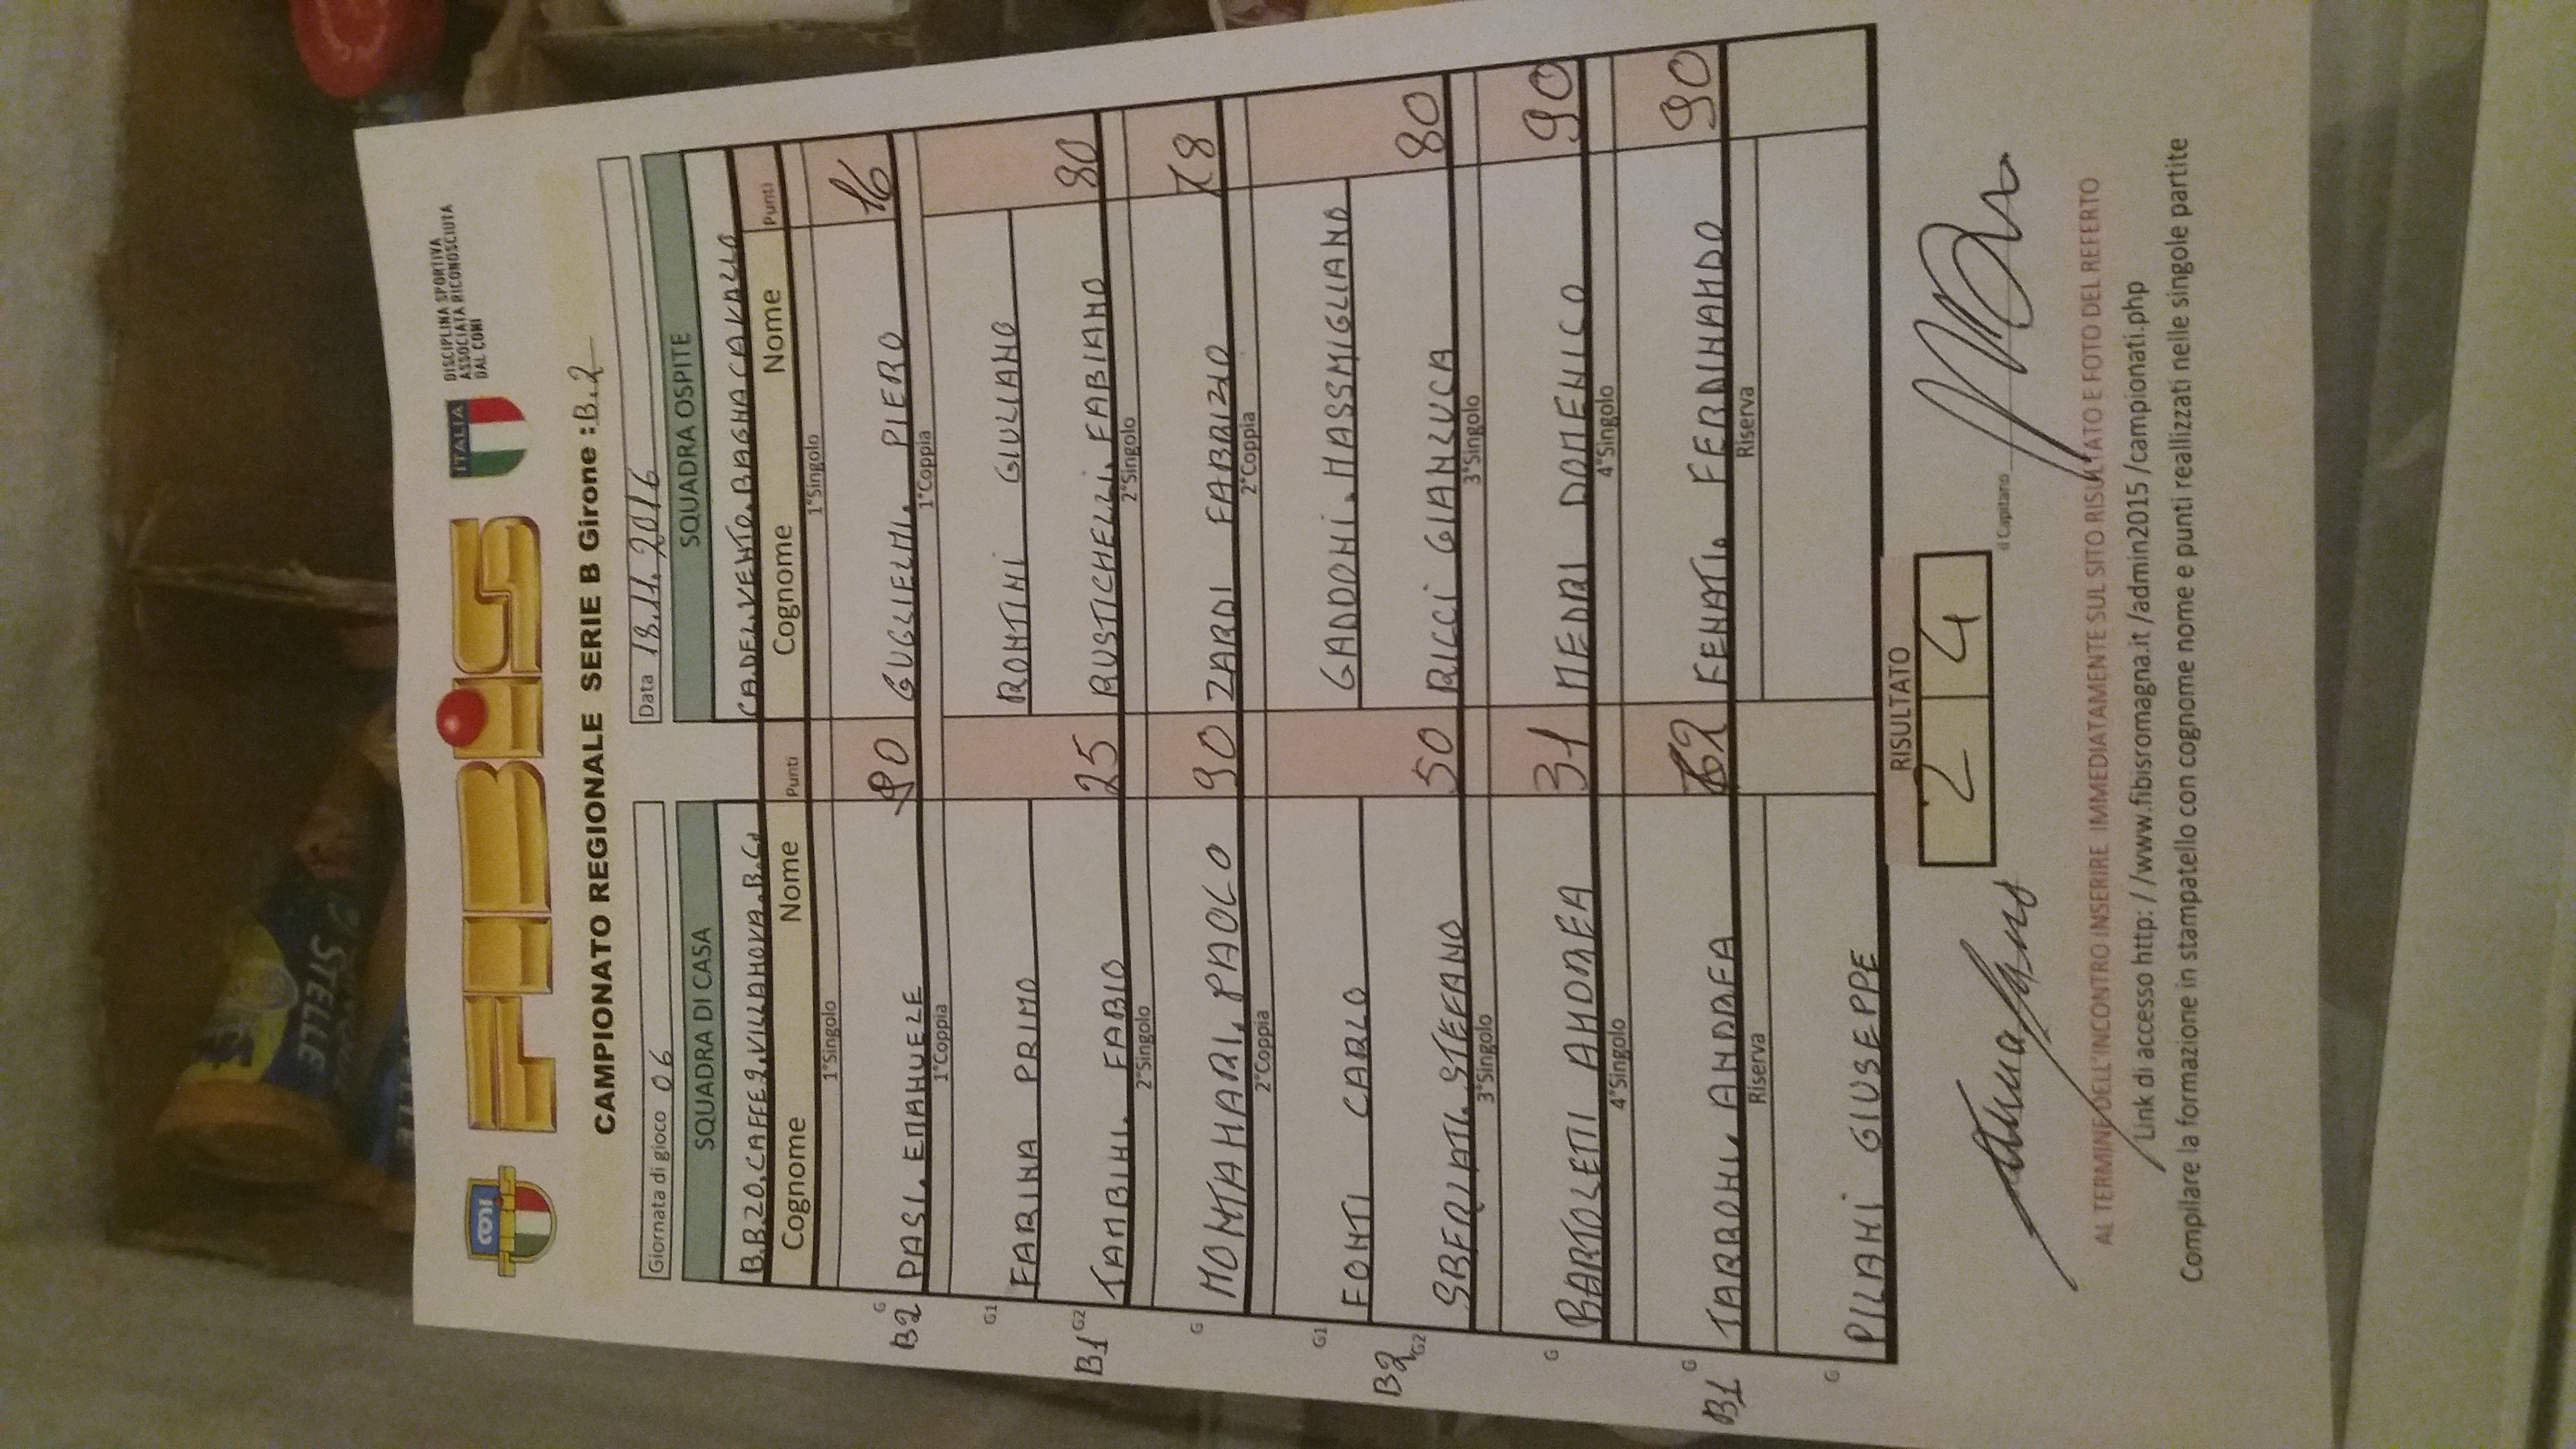 CONI
FIBIS
ITALIA
DISCIPLINA SPORTIVA
ASSOCIATA RICONOSCIUTA
DAL CONI
CAMPIONATO REGIONALE SERIE B Girone :B.2
Giornata di gioco 06 Data 18.11.2016
SQUADRA DI CASA SQUADRA OSPITE
B.B.20.CAFFE 9.VILLANOVA.B.C. CA.DEL.VENTO.BAGNACAVALLO
Cognome Nome Punti Cognome Nome Punti
1°Singolo 1°Singolo
B2 G DASI. EMANUELE 90 GUGLIELMI. PIERO 16
1°Coppia 1°Coppia
G1 FARINA PRIMO RONTINI GIULIANO
B1 G2 TAMBINI. FABIO 25 RUSTICHELLI. FABIANO 80
2°Singolo 2°Singolo
G MONTANARI. PAOLO 90 ZARDI FABRIZIO 78
2°Coppia 2°Coppia
G1 FONTI CARLO GADDONI. MASSMIGLIANO
B2 G2 SBERLATI. STEFANO 50 RICCI GIANLUCA 80
3°Singolo 3°Singolo
G BARTOLETTI ANDREA 31 MEDRI DOMENICO 90
4°Singolo 4°Singolo
B1 G TARRONI. ANDREA 62 FENATI. FERDINANDO 90
Riserva Riserva
G PILANI GIUSEPPE
RISULTATO
2 4
il Capitano
AL TERMINE DELL'INCONTRO INSERIRE IMMEDIATAMENTE SUL SITO RISULTATO E FOTO DEL REFERTO
Link di accesso http: / /www.fibisromagna.it /admin2015 /campionati.php
Compilare la formazione in stampatello con cognome nome e punti reallizzati nelle singole partite
STELLE